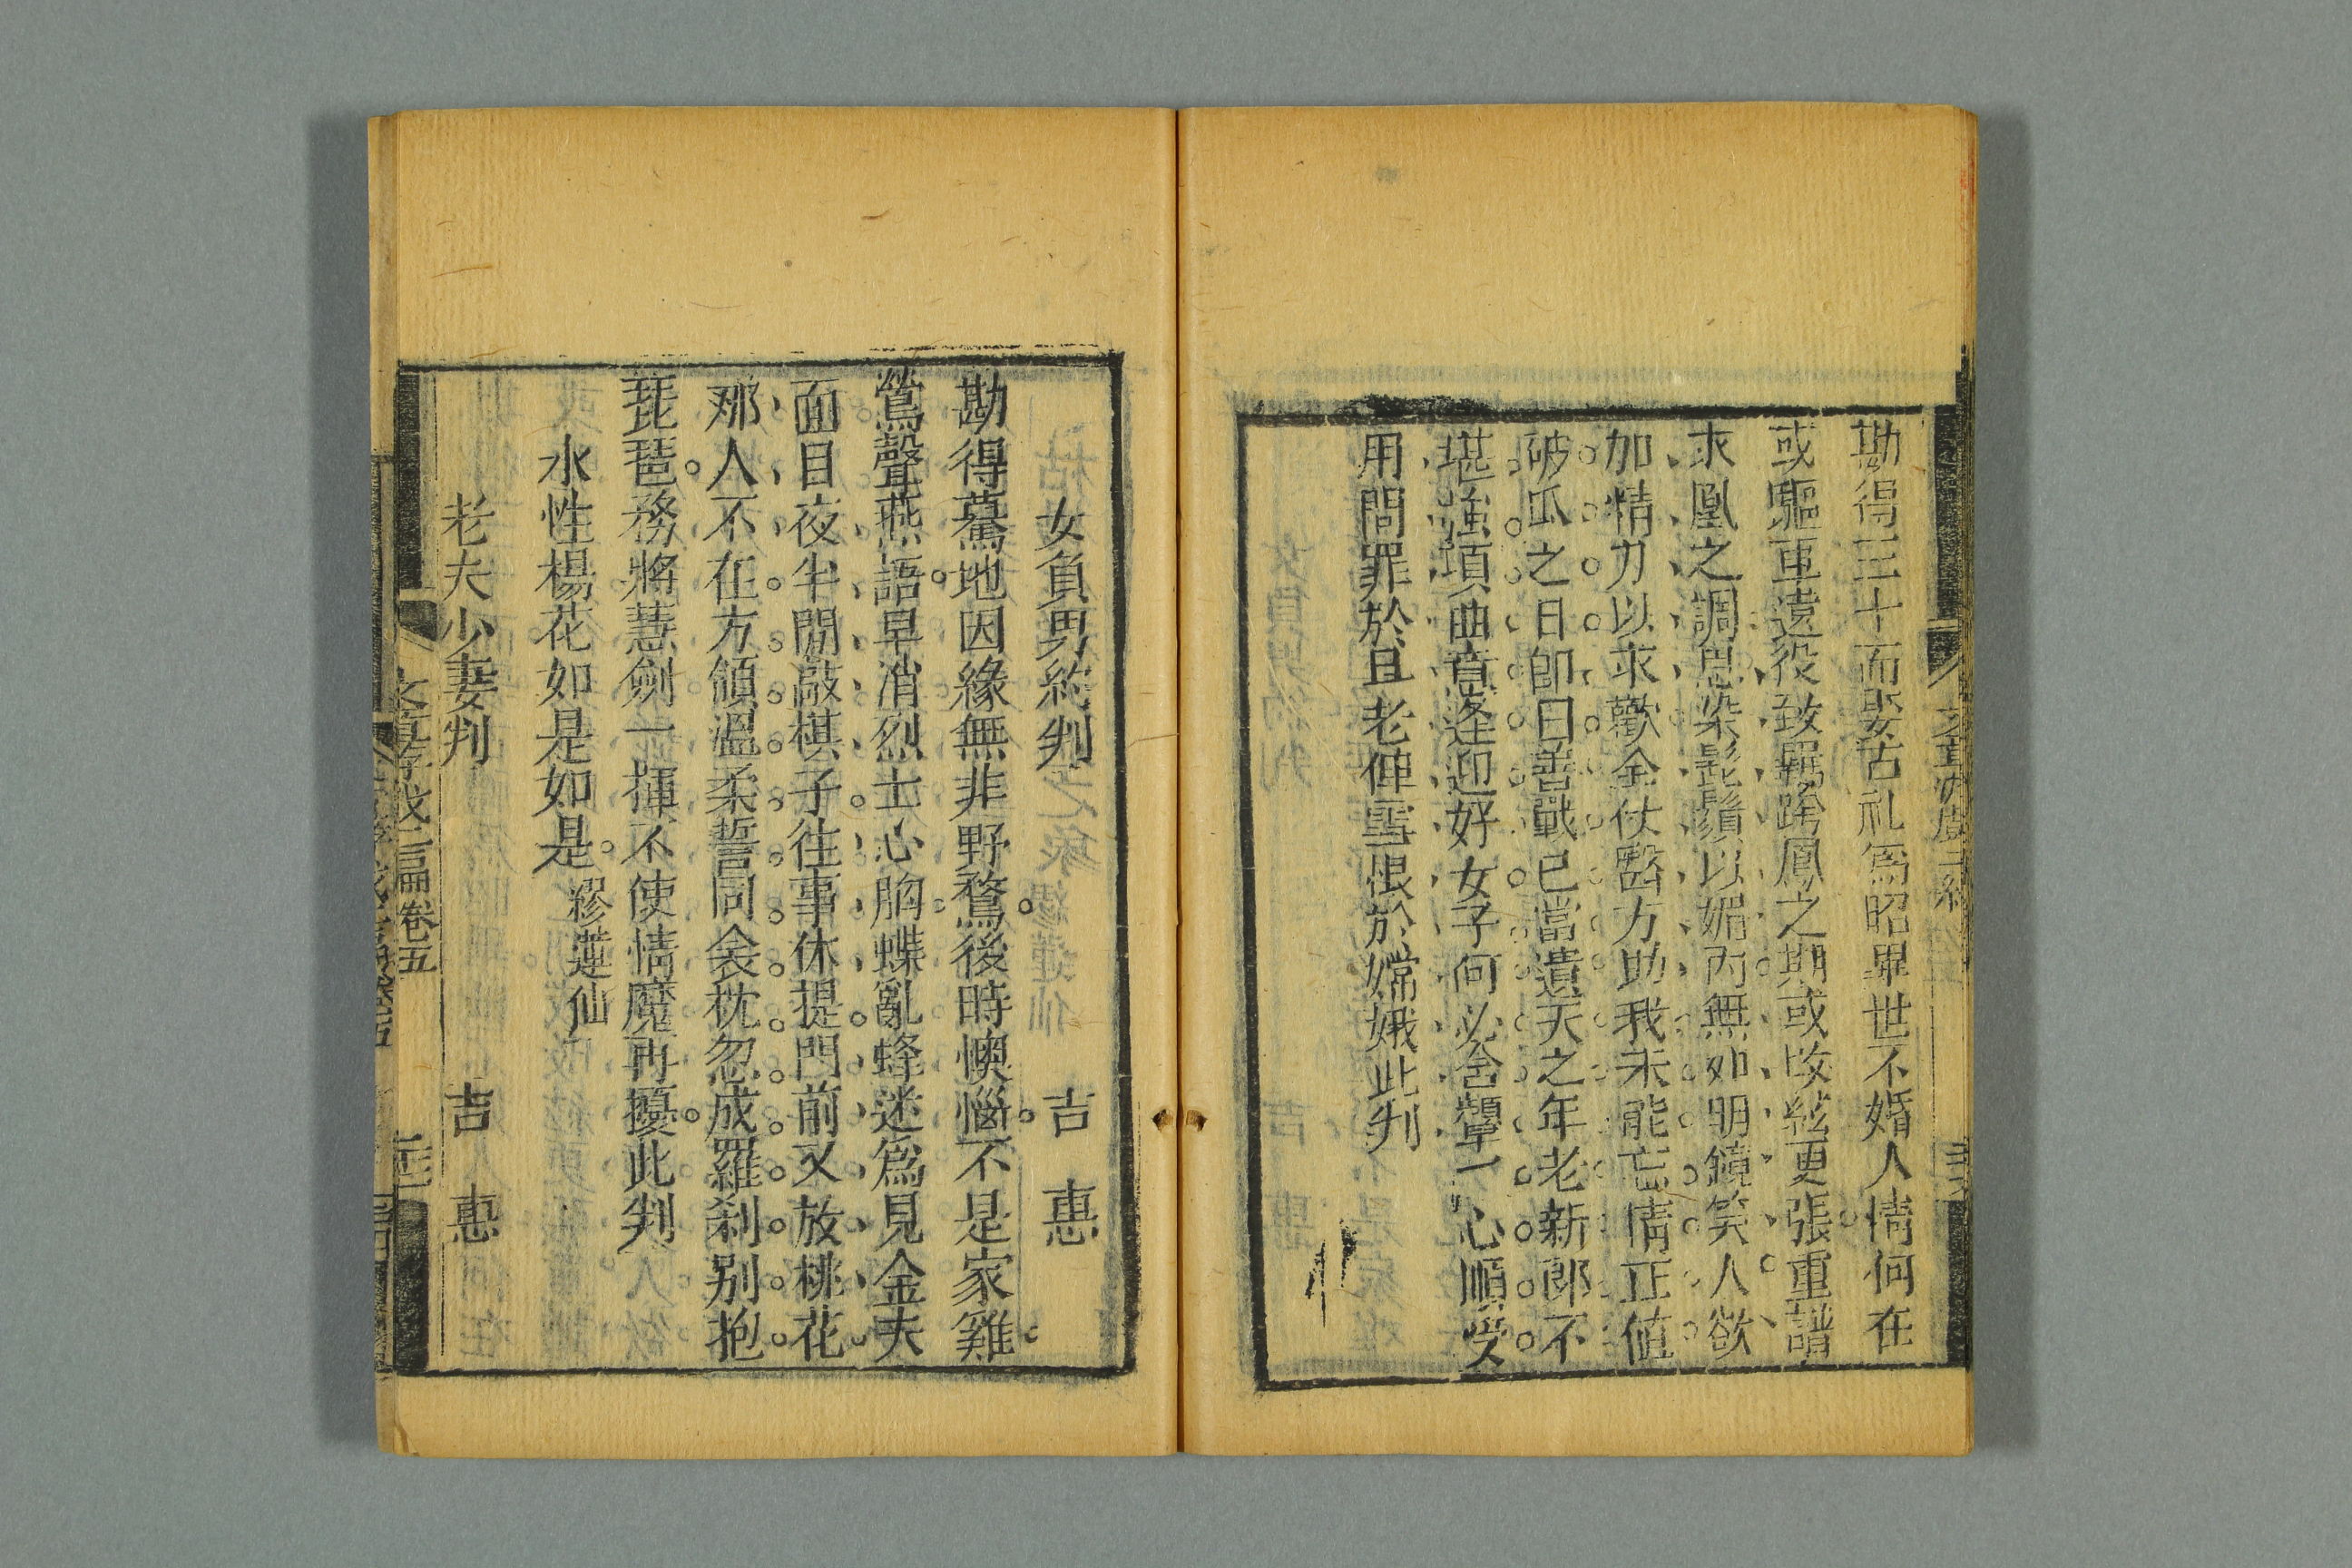 勘得三十而娶古礼爲昭畢世不婚人情何在
或驅車遠役致羈跨鳳之期或改絃更張重譜
求凰之調思染髭鬚以媚内無如明鏡笑人欲
加精力以求歡全仗醫方助我未能忘情正値
破瓜之日卽曰善戰已當遺矢之年老新郎不
堪強項曲意逢迎好女子何必含顰一心順受
用問罪於且老伸雪恨於嫦娥此判
女負男約判 吉惠
勘得驀地因緣無非野鶩後時懊惱不是家雞
鶯聲燕語早消烈士心胸蝶亂蜂迷爲見金夫
面目夜半閒敲棋子往事休提門前又放桃花
那人不在方領溫柔誓同衾枕忽成羅刹別抱
琵琶務將慧劍一揮不使情魔再擾此判
水性楊花如是如是 繆蓮仙
老夫少妻判 吉惠
文章游戲二編卷五